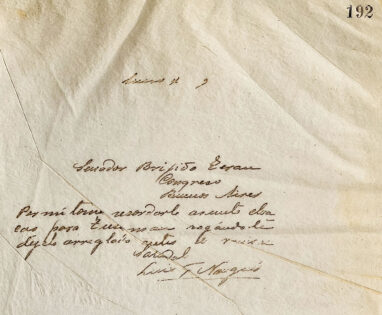 192
Lunes 9
Senador Brijido Teran
Congreso
Buenos Aires
Permitome recordarle asunto
cas para Tucuman rogándole
dejelo arreglado antes
Salúdalo
Luis F Nougués